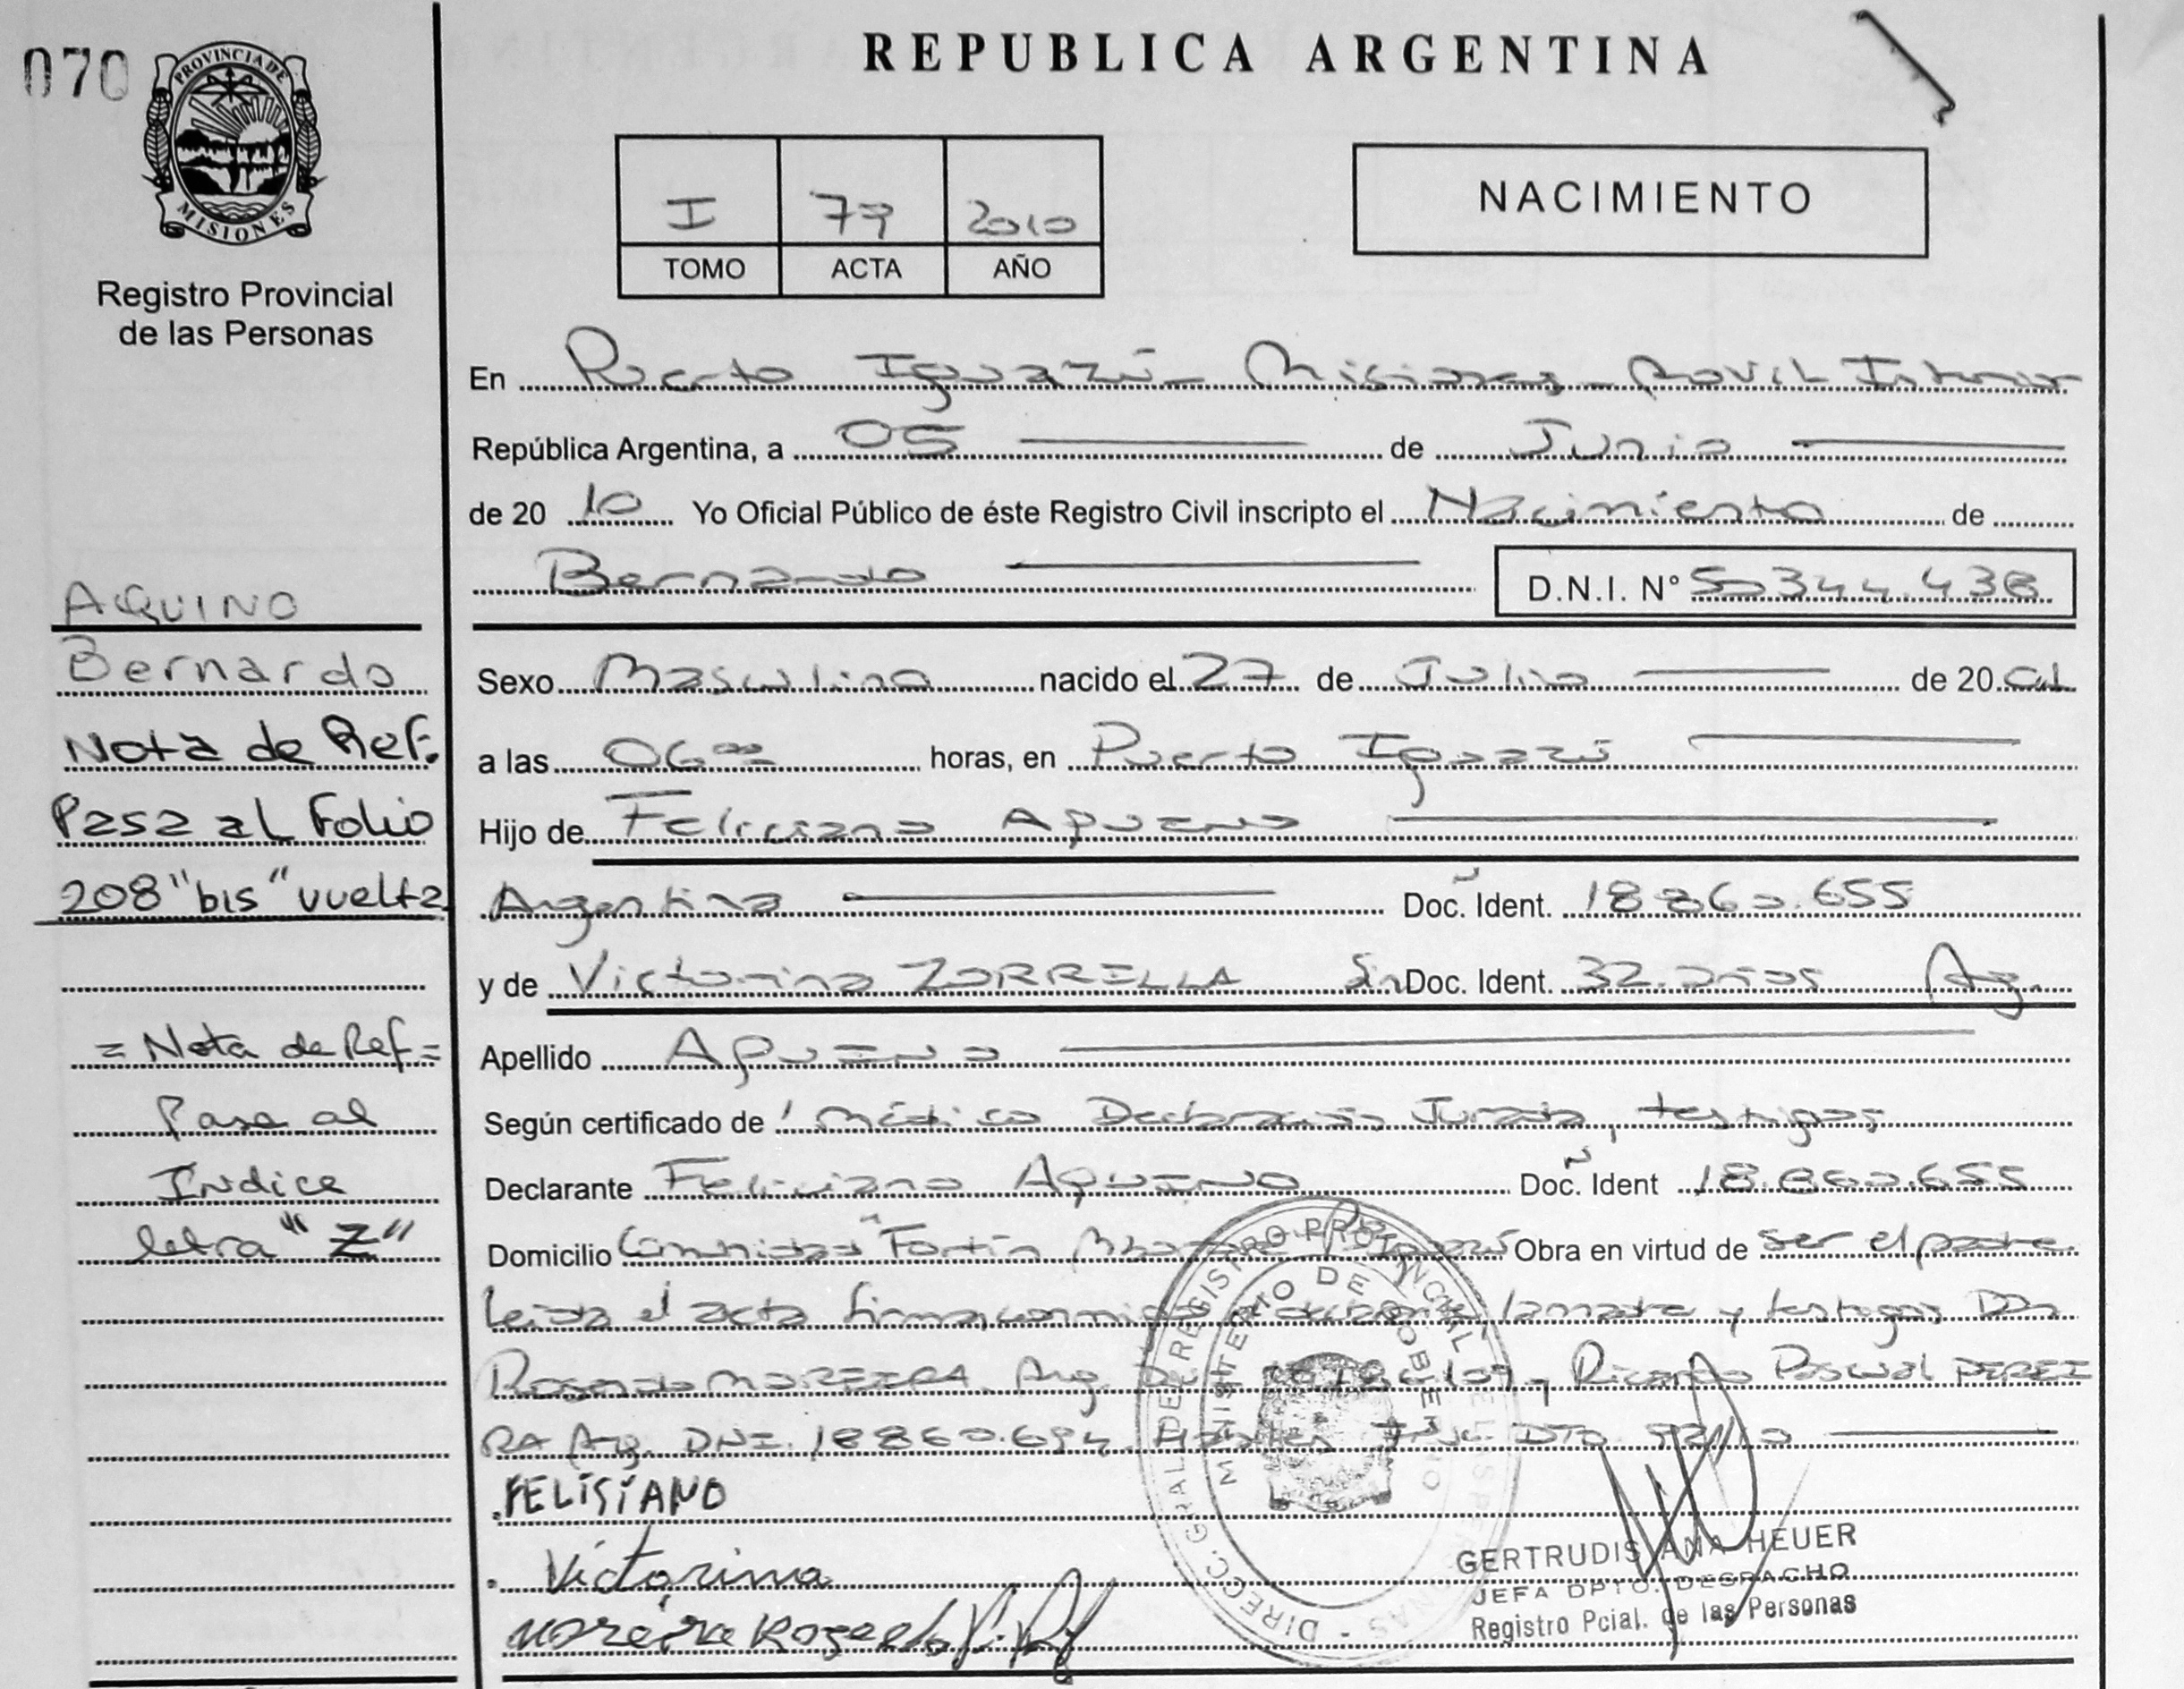 070
PROVINCIA DE
MISIONES
Registro Provincial
de las Personas
REPUBLICA ARGENTINA
I 79 2010
TOMO ACTA AÑO
NACIMIENTO
En Puerto Iguazú - Misiones - Movil Interior
República Argentina, a 05 de Junio
de 20 10 Yo Oficial Público de éste Registro Civil inscripto el Nacimiento de
Bernardo D.N.I. N° 50344.438
Sexo Masculino nacido el 27 de Julio de 20 01
a las 06 00 horas, en Puerto Iguazú
Hijo de Feliciano AQUINO
Argentina Doc. Ident. 18.860.655
y de Victorina ZORRELLA Sin Doc. Ident. 32 años Arg.
Apellido AQUINO
Según certificado de Médico Declaración Jurada, testigos
Declarante Feliciano AQUINO Doc. Ident 18.860.655
Domicilio Comunidad "Fortín Mbororé" Pto Iguazú Obra en virtud de ser el padre
Leida el acta firma conmigo el declarante, la madre y testigos Don
Rosendo MOREIRA Arg. y Ricardo Pascual PEREI
RA Arg. DNI. 18860.694
FELISIANO
Victorina
Moreira Rosendo
AQUINO
Bernardo
Nota de Ref.
Pasa al Folio
208 "bis" vuelta
= Nota de Ref =
Pasa al
Indice
letra "Z"
DIRECC. GRAL DEL REGISTRO PROVINCIAL DE LAS PERSONAS
MINISTERIO DE GOBIERNO
GERTRUDIS ANA HEUER
JEFA DPTO. DESPACHO
Registro Pcial. de las Personas